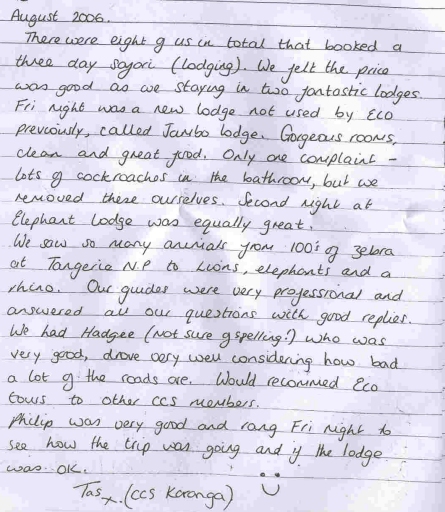 August 2006.
There were eight of us in total that booked a
three day safari (lodging). We felt the price
was good as we staying in two fantastic lodges.
Fri night was a new lodge not used by Eco
previously, called Jambo lodge. Gorgeous rooms,
clean and great food. Only one complaint -
lots of cockroaches in the bathroom, but we
removed these ourselves. Second night at
Elephant Lodge was equally great.
We saw so many animals from 100's of zebra
at Tangerie N.P to Lions, elephants and a
rhino. Our guides were very professional and
answered all our questions with good replies.
We had Hadgee (not sure of spelling!) who was
very good, drove very well considering how bad
a lot of the roads are. Would recommed Eco
tours to other CCS members.
Philip was very good and rang Fri night to
see how the trip was going and if the lodge
was OK.
Tas x. (CCS Karanga)